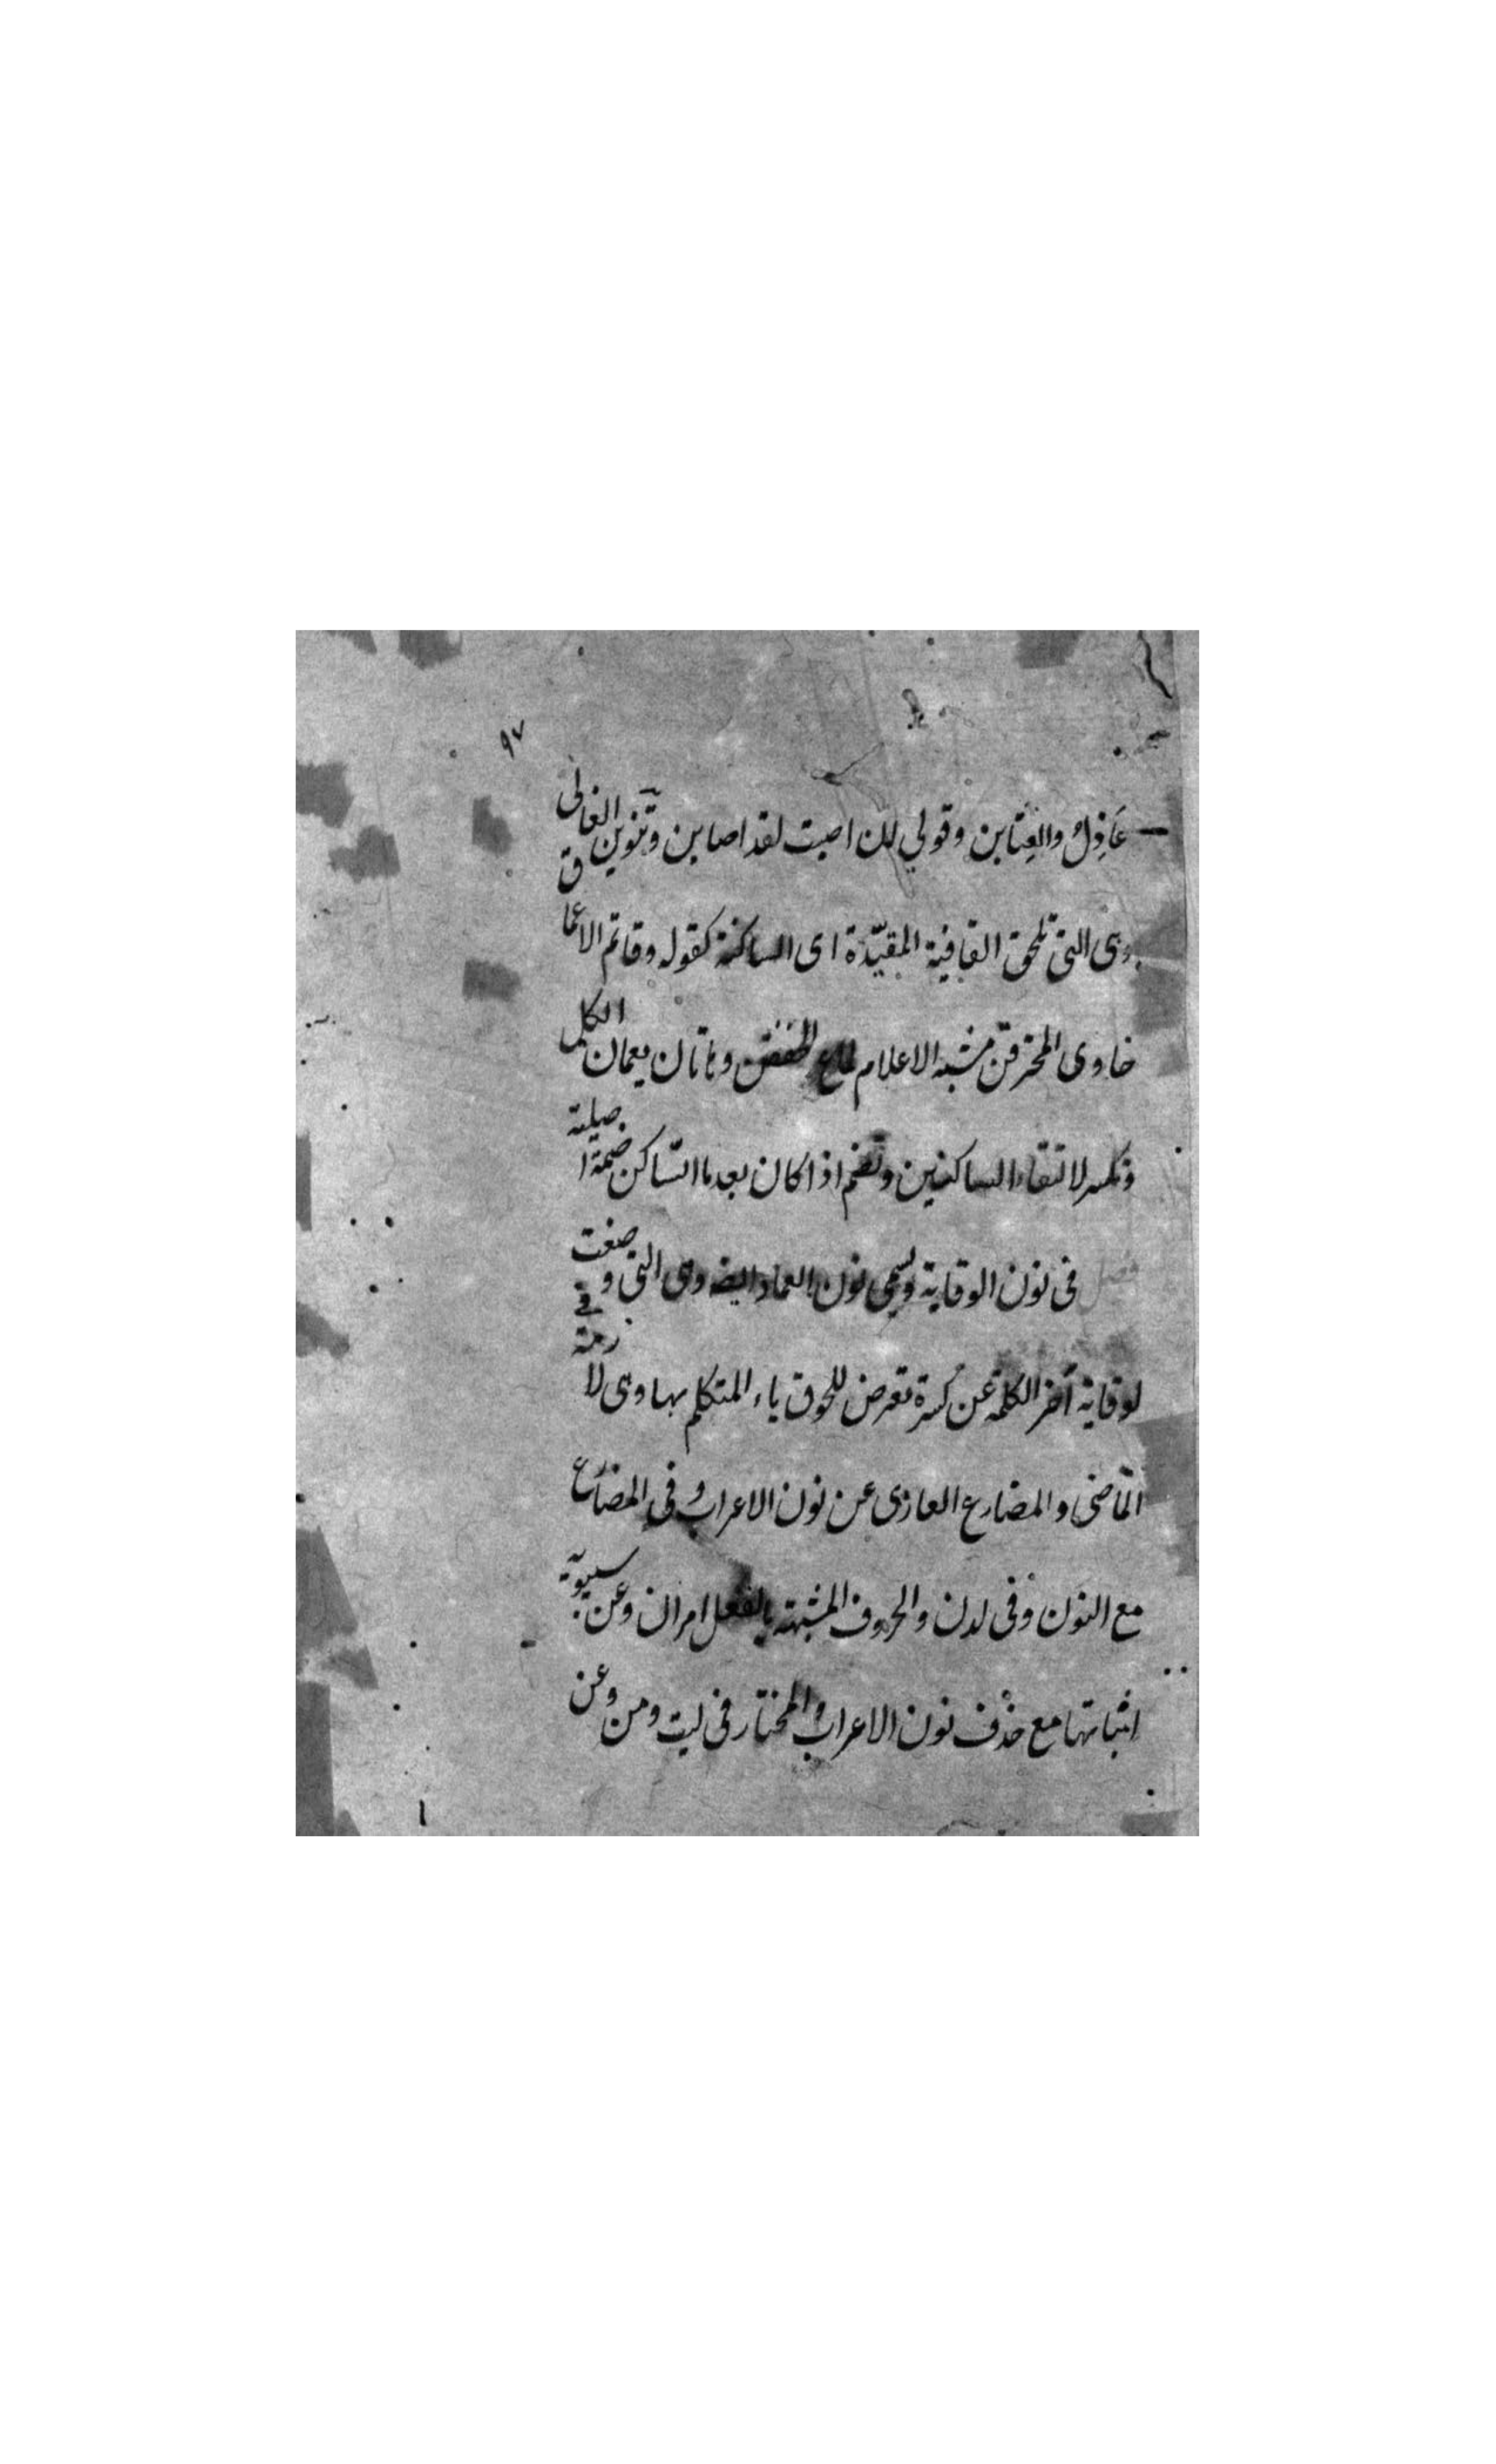 ٩٧
عَاذِلُ والعِتابن وقولي لن اصبت لقد اصابن وتنوين الغالى
وهى التى تلحق القافية المقيّدة اى الساكنة كقوله وقاتم الاعماق
خاوى المخترقن مشبه الاعلام لماع الخفقن وهاتان يعمان الكل
وتكسر لالتقاء الساكنين وتضم اذا كان بعدها السّاكن ضمة اصلية
فصل فى نون الوقاية ويسمى نون العماد ايضا وهى التى وضعت
لوقاية آخر الكلمة عن كسرة تعرض للحوق ياء المتكلم بها وهى لازمة فى
الماضى والمضارع العارى عن نون الاعراب وفى المضارع
مع النون وفى لدن والحروف المشبهة بالفعل امران وعن سيبويه
اثباتها مع حذف نون الاعراب والمختار فى ليت ومن وعن